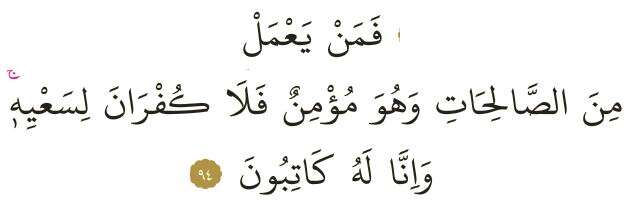 فَمَنْ يَعْمَلْ
مِنَ الصَّالِحَاتِ وَهُوَ مُؤْمِنٌ فَلَا كُفْرَانَ لِسَعْيِهٖۚ
وَاِنَّا لَهُ كَاتِبُونَ ٩٤